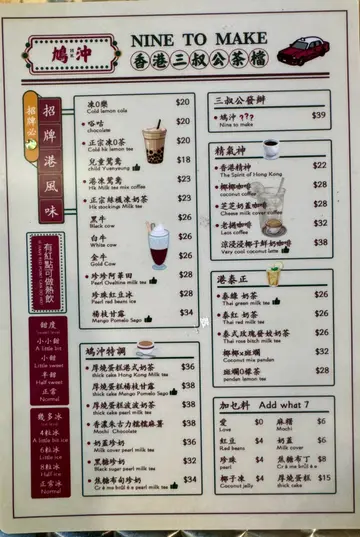 鳩沖
NINE TO MAKE
香港三叔公茶檔
招牌必
招牌港風味
凍0樂 $20
Cold lemon cola
唂咕 $20
chocolate
正宗凍0茶 $20
Cold hk lemon tea
兒童鴛鴦 $18
child Yuenyeung
港凍鴛鴦 $23
Hk Milk tea mix coffee
正宗絲襪凍奶茶 $23
Hk stockings Milk tea
黑牛 $26
Black cow
白牛 $26
White cow
金牛 $26
Gold Cow
珍珍阿華田 $28
Pearl Ovaltine milk tea
珍珠紅豆冰 $28
Pearl red beans ice
楊枝甘露 $34
Mango Pomelo Sago
有紅點可做熱飲
甜度
小小甜
A little bit
小甜
Little sweet
半甜
Half sweet
正常
Normal
幾多冰
4粒冰
A little bit ice
6粒冰
Little ice
8粒冰
Half ice
正常冰
Normal
鳩沖特調
厚燒蛋糕港式奶茶 $36
thick cake Hong Kong Milk tea
厚燒蛋糕楊枝甘露 $38
thick cake Mango Pomelo Sago
厚燒蛋糕波波奶茶 $38
thick cake pearl milk tea
香濃朱古力糯糯麻薯 $38
Mochi Chocolate
奶蓋珍奶 $36
Milk cover pearl milk tea
黑糖珍奶 $32
Black sugar pearl milk tea
焦糖布甸珍奶 $34
Cr è me brûl é e pearl milk tea
三叔公發辦
鳩沖 ??? $39
Nine to make
精氣神
香港精神 $22
The Spirit of Hong Kong
椰椰咖啡 $28
coconut coffee
芝芝奶蓋咖啡 $28
Cheese milk cover coffee
老撾咖啡 $32
Lao coffee
涼浸浸椰子鮮奶咖啡 $38
Very cool coconut latte
港泰正
泰綠 奶茶 $26
Thai green milk tea
泰紅 奶茶 $26
Thai red milk tea
泰式玫瑰發蚊奶茶 $26
Thai rose bitch milk tea
椰椰x斑斕 $32
Coconut mix pandan
斑斕0檬茶 $28
pandan lemon tea
加乜料 Add what ?
愛 $0
Love
麻糬 $6
Mochi
紅豆 $4
Red beans
奶蓋 $6
Milk cover
珍珠 $4
pearl
焦糖布丁 $8
Cr è me brûl é e
椰子凍 $4
Coconut jelly
厚燒蛋糕 $15
thick cake